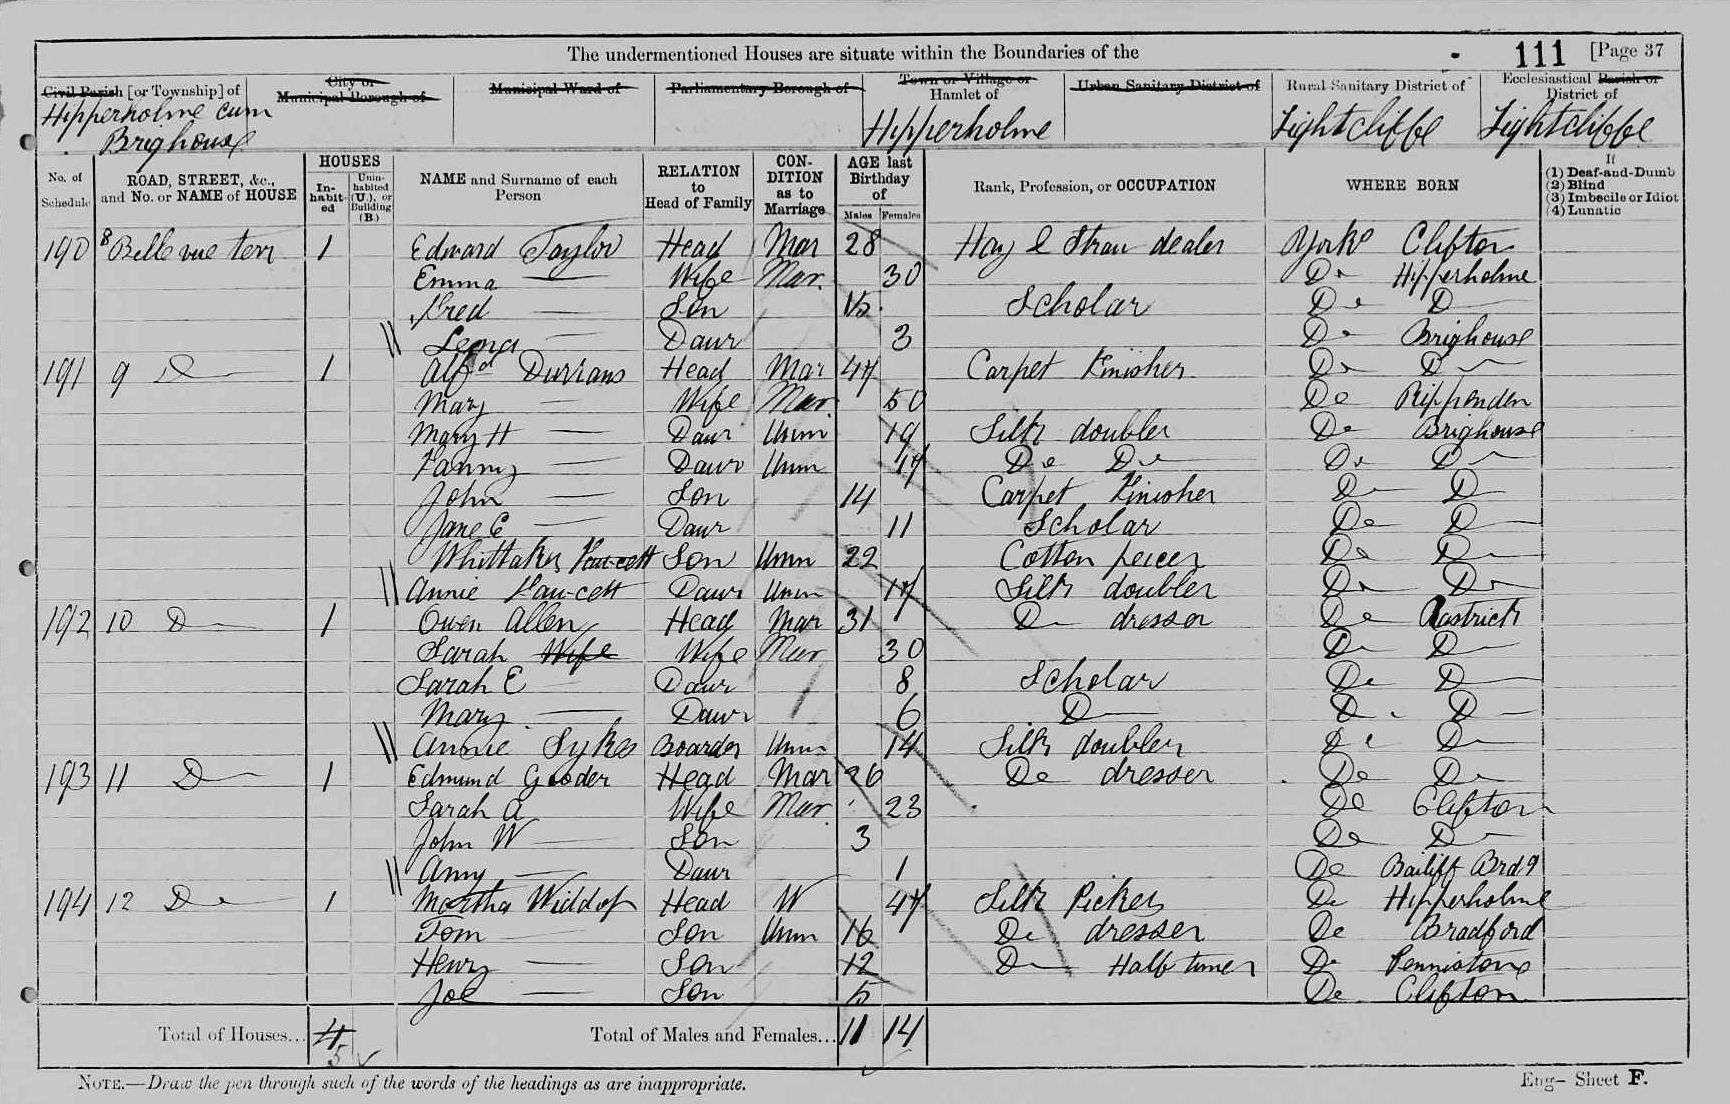 The undermentioned Houses are situate within the Boundaries of the
111 [Page 37
Civil Parish [or Township] of
City or Municipal Borough of
Municipal Ward of
Parliamentary Borough of
Town or Village or Hamlet of
Urban Sanitary District of
Rural Sanitary District of
Ecclesiastical Parish or District of
Hipperholme cum Brighouse
Hipperholme
Lightcliffe
Lightcliffe
No. of Schedule
ROAD, STREET, &c., and No. or NAME of HOUSE
HOUSES
In-habit-ed
Unin-habited (U.), or Building (B.)
NAME and Surname of each Person
RELATION to Head of Family
CON-DITION as to Marriage
AGE last Birthday of
Males Females
Rank, Profession, or OCCUPATION
WHERE BORN
If
(1) Deaf-and-Dumb
(2) Blind
(3) Imbecile or Idiot
(4) Lunatic
190 8 Belle vue terr 1 Edward Taylor Head Mar 28 Hay & Straw dealer Yorks Clifton
Emma — Wife Mar. 30 Do Hipperholme
Fred — Son Scholar Do D
Lena — Daur 3 Do Brighouse
191 9 Do 1 Alfd Durrans Head Mar 47 Carpet Finisher Do Do
Mary — Wife Mar 50 Do Rippenden
Mary H — Daur Unm 19 Silk doubler Do Brighouse
Fanny — Daur Unm 17 Do Do Do Do
John — Son 14 Carpet Finisher Do Do
Jane E — Daur 11 Scholar Do Do
Whittaker Fawcett Son Unm 22 Cotton peicer Do Do
Annie Fawcett Daur Unm 17 Silk doubler Do Do
192 10 Do 1 Owen Allen Head Mar 31 Do dresser Do Rastrick
Sarah Wife Wife Mar 30 Do Do
Sarah E — Daur 8 Scholar Do Do
Mary — Daur 6 Do Do Do
Annie Sykes Boarder Unm 14 Silk doubler Do Do
193 11 Do 1 Edmund Gooder Head Mar 26 Do dresser Do Do
Sarah A Wife Mar. 23 Do Clifton
John W — Son 3 Do Do
Amy — Daur 1 Do Bailiff Brdg
194 12 Do 1 Martha Widdop Head W 47 Silk Picker Do Hipperholme
Tom — Son Unm 16 Do dresser Do Bradford
Henry — Son 12 Do Half timer Do Pennistone
Joe — Son 5 Do Clifton
Total of Houses... 4 5
Total of Males and Females... 11 14
NOTE.—Draw the pen through such of the words of the headings as are inappropriate.
Eng— Sheet F.